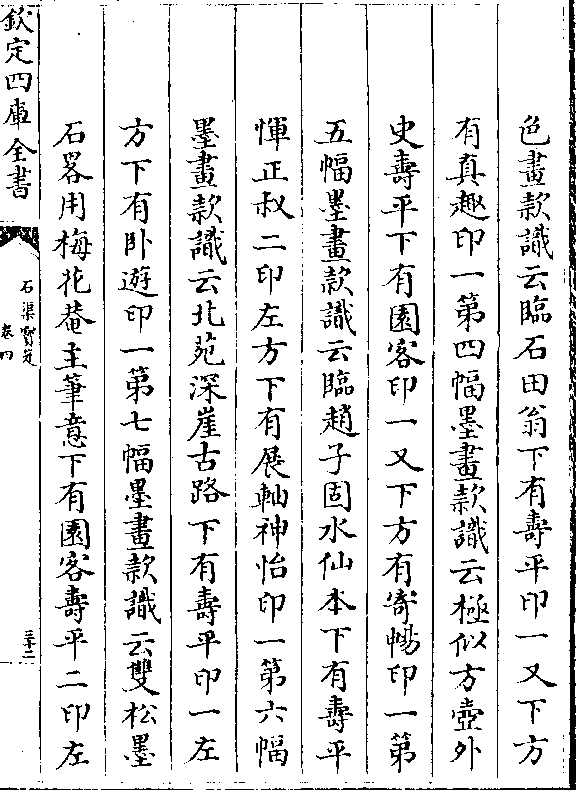 色畫款識云臨石田翁下有壽平印一又下方
有真趣印一第四幅墨畫款識云極似方壺外
史壽平下有園客印一又下方有寄暢印一第
五幅墨畫款識云臨趙子固水仙本下有壽平
惲正叔二印左方下有展軸神怡印一第六幅
墨畫款識云北苑深崖古路下有壽平印一左
方下有卧遊印一第七幅墨畫款識云雙松墨
石畧用梅花菴主筆意下有園客壽平二印左
欽定四庫全書
石渠寳笈
卷四
三十二